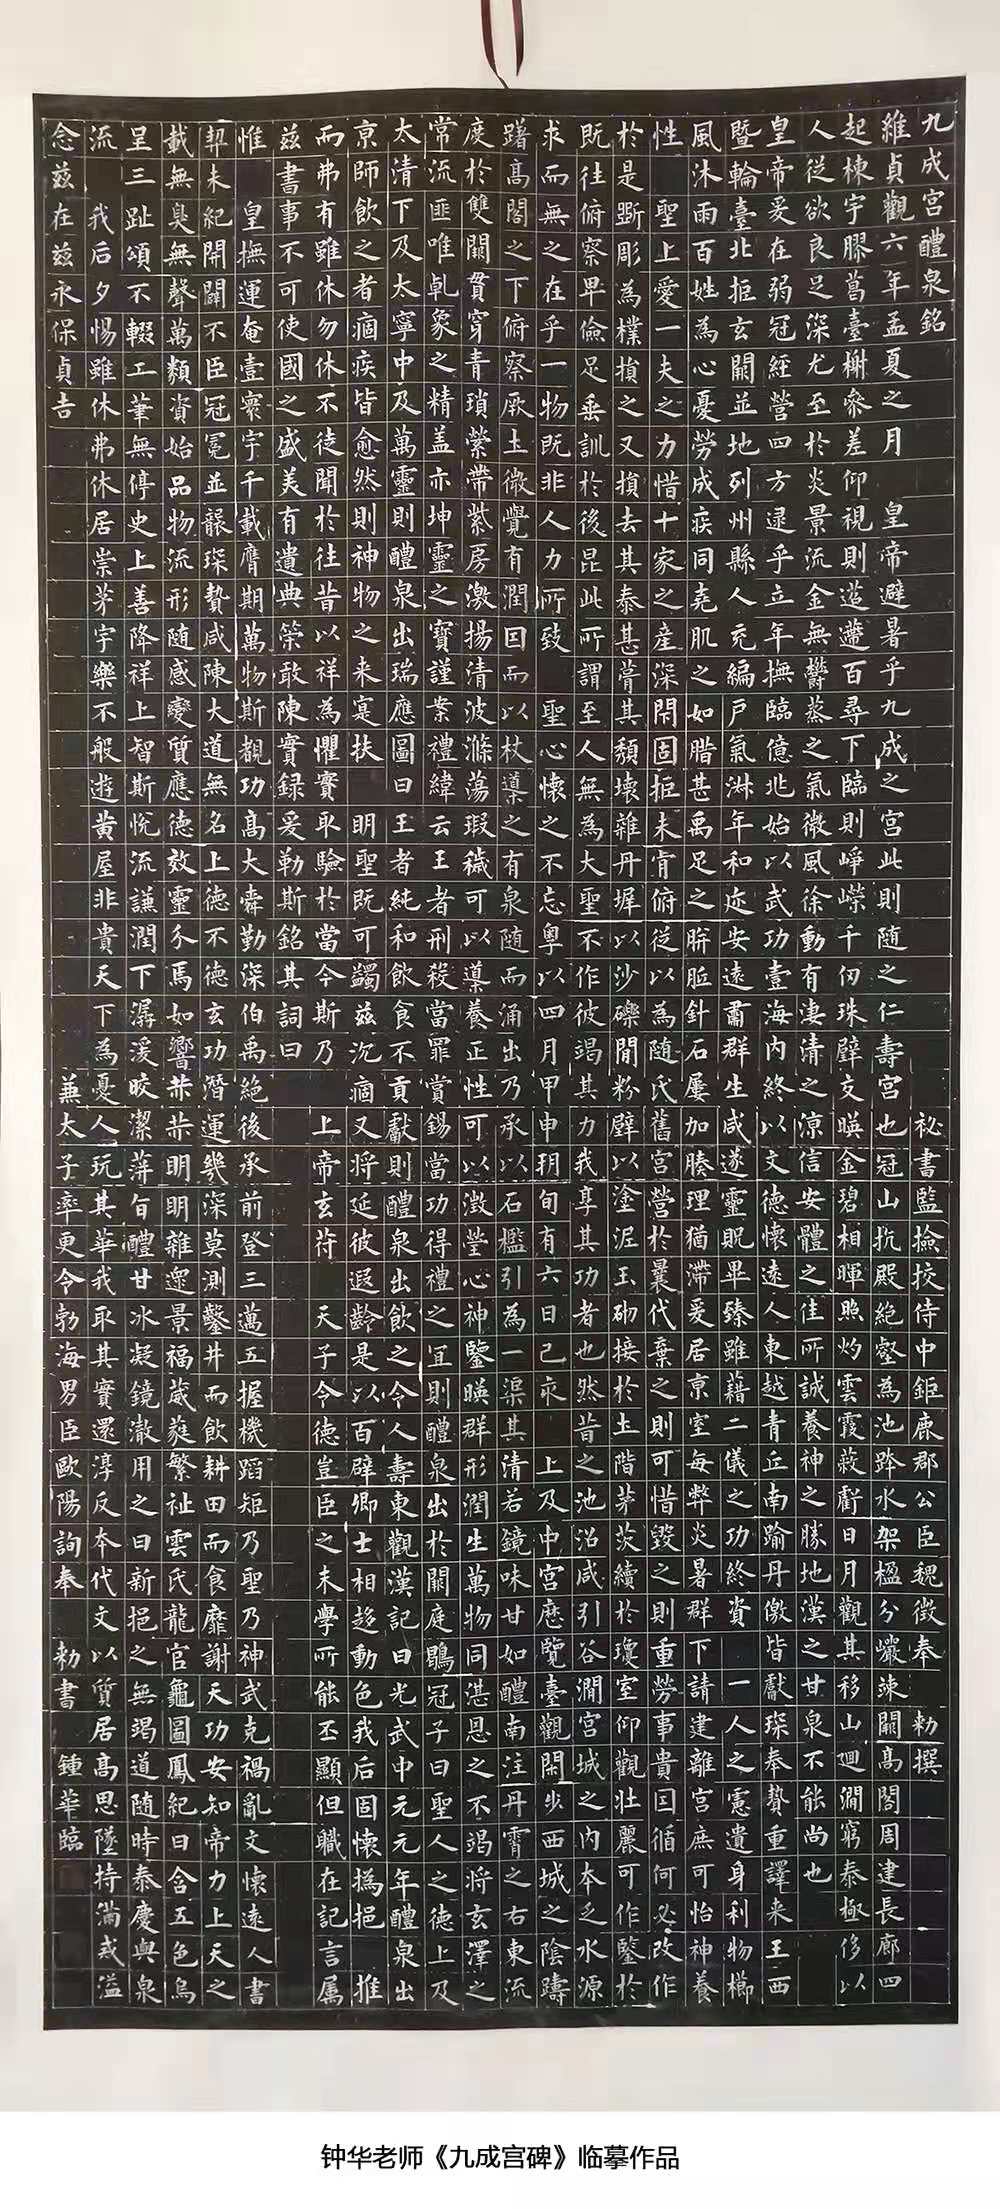 九成宮醴泉銘 秘書監撿挍侍中鉅鹿郡公臣魏徵奉 勑撰
維貞觀六年孟夏之月 皇帝避暑乎九成之宮此則随之仁壽宮也冠山抗殿絕壑為池跨水架楹分巖竦闕高閣周建長廊四
起棟宇膠葛臺榭參差仰視則迢遰百尋下臨則崢嶸千仞珠璧交暎金碧相暉照灼雲霞蔽虧日月觀其移山迴澗窮泰極侈以
人從欲良足深尤至於炎景流金無鬱蒸之氣微風徐動有淒清之涼信安體之佳所誠養神之勝地漢之甘泉不能尚也
皇帝爰在弱冠經營四方逮乎立年撫臨億兆始以武功壹海內終以文德懷遠人東越青丘南踰丹儌皆獻琛奉贄重譯来王西
暨輪臺北拒玄闕並地列州縣人充編戶氣淋年和迩安遠肅群生咸遂靈貺畢臻雖藉二儀之功終資 一人之憲遺身利物櫛
風沐雨百姓為心憂勞成疾同堯肌之如腊甚禹足之胼胝針石屢加腠理猶滯爰居京室每弊炎暑群下請建離宮庶可怡神養
性 聖上愛一夫之力惜十家之産深閑固拒未肯俯從以為随氏舊宮營於曩代棄之則可惜毀之則重勞事貴因循何必改作
於是斲彫為樸損之又損去其泰甚葺其頹壞雜丹墀以沙礫間粉壁以塗泥玉砌接於土階茅茨續於瓊室仰觀壯麗可作鑒於
既往俯察卑儉足垂訓於後昆此所謂至人無為大聖不作彼竭其力我享其功者也然昔之池沼咸引谷澗宮城之內本乏水源
求而無之在乎一物既非人力所致 聖心懷之不忘粵以四月甲申朔旬有六日己亥 上及中宮歷覽臺觀閑步西城之陰躊
躇高閣之下俯察厥土微覺有潤因而以杖導之有泉随而涌出乃承以石檻引為一渠其清若鏡味甘如醴南注丹霄之右東流
度於雙闕貫穿青瑣縈帶紫房激揚清波滌蕩瑕穢可以導養正性可以澂瑩心神鑒暎群形潤生萬物同湛恩之不竭将玄澤之
常流匪唯乹象之精盖亦坤靈之寶謹案禮緯云王者刑殺當罪賞錫當功得禮之宜則醴泉出於闕庭鶡冠子曰聖人之德上及
太清下及太寧中及萬靈則醴泉出瑞應圖曰王者純和飲食不貢獻則醴泉出飲之令人壽東觀漢記曰光武中元元年醴泉出
京師飲之者痼疾皆愈然則神物之来寔扶 明聖既可蠲兹沉痼又将延彼遐齡是以百辟卿士相趍動色我后固懷撝挹 推
而弗有雖休勿休不徒聞於往昔以祥為懼實取驗於當今斯乃 上帝玄苻 天子令德豈臣之末學所能丕顯但職在記言属
兹書事不可使國之盛美有遺典策敢陳實録爰勒斯銘其詞曰
惟 皇撫運奄壹寰宇千載膺期萬物斯覩功高大舜勤深伯禹絕後承前登三邁五握機蹈矩乃聖乃神武克禍亂文懷遠人書
契未紀開闢不臣冠冕並襲琛贄咸陳大道無名上德不德玄功潛運幾深莫測鑿井而飲耕田而食靡謝天功安知帝力上天之
載無臭無聲萬類資始品物流形随感變質應德效靈介焉如響赫赫明明雜遝景福葳蕤繁祉雲氏龍官龜圖鳳紀日含五色烏
呈三趾頌不輟工筆無停史上善降祥上智斯悅流謙潤下潺湲皎潔蓱旨醴甘冰凝鏡澈用之日新挹之無竭道随時泰慶與泉
流 我后夕惕雖休弗休居崇茅宇樂不般遊黄屋非貴天下為憂人玩其華我取其實還淳反本代文以質居高思墜持滿戒溢
念兹在兹永保貞吉 兼太子率更令勃海男臣歐陽詢奉 勑書 鍾華臨
钟华老师《九成宫碑》临摹作品